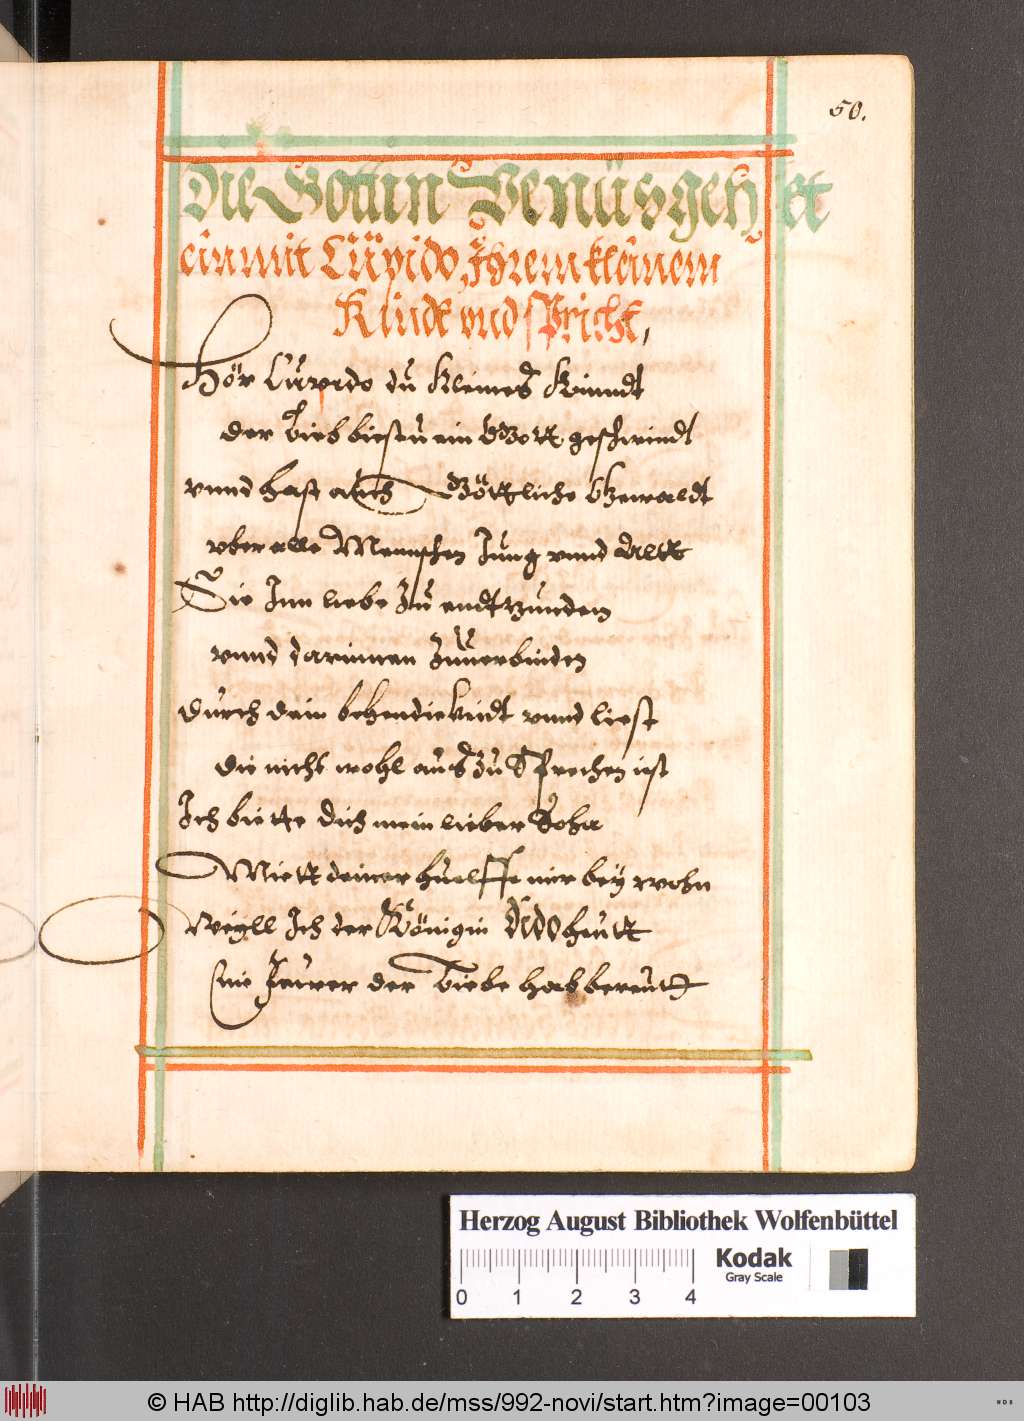 50.
Die Göttin Venüs geh et
ein mit Cüpido, Ihrem kleinem
Kindt vnd spricht,
Hör Cüpido dü kleines Kinndt
der Lieb biestu ein Gott geschwindt
vnnd hast auch Göttliche Gewaldt
vber alle Mennschen Jung vnnd Altt
Sie Inn liebe zu endtzünden
vnnd darinnen zuuerbinden
durch dein behendiekeidt vnnd liest
die nicht wohl aus zu Sprechen ist
Ich bitte dich mein lieber Sohn
Miett deiner huelffe mir bey wohn
Weyll Ich der Königin Dido heutt
ein Feurer der Liebe hab bereutt
Herzog August Bibliothek Wolfenbüttel
Kodak
Gray Scale
0 1 2 3 4
© HAB http://diglib.hab.de/mss/992-novi/start.htm?image=00103